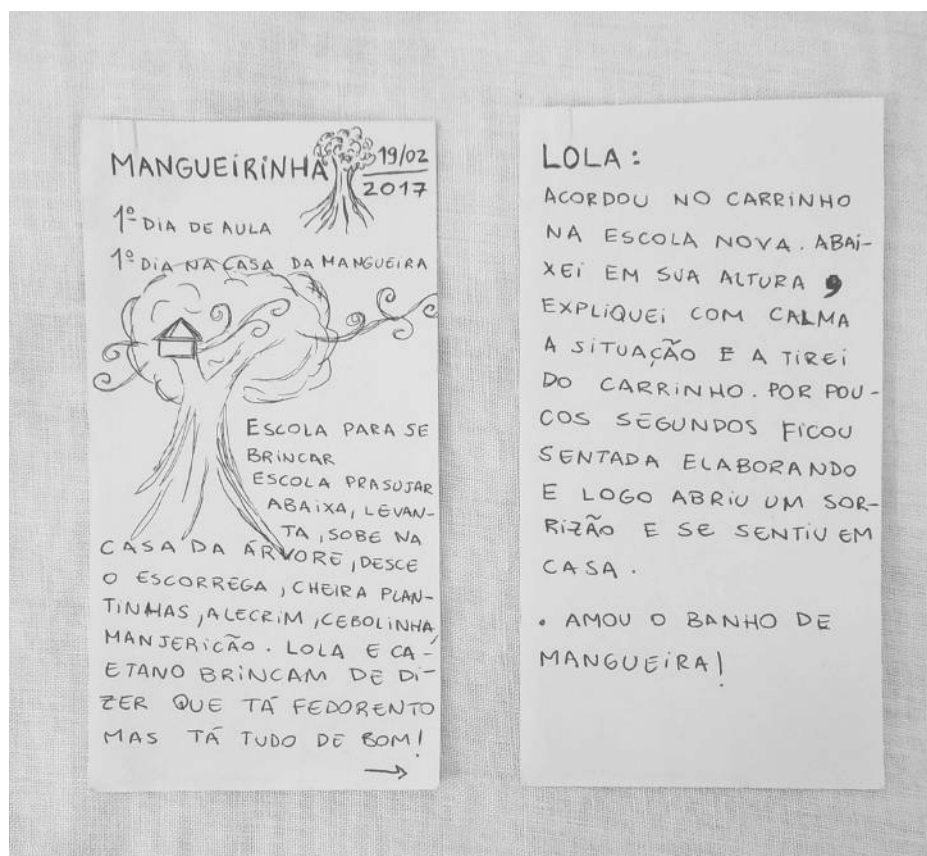 MANGUEIRINHA 19/02
2017
1º DIA DE AULA
1º DIA NA CASA DA MANGUEIRA
ESCOLA PARA SE
BRINCAR
ESCOLA PRA SUJAR
ABAIXA, LEVAN-
TA, SOBE NA
CASA DA ÁRVORE, DESCE
O ESCORREGA, CHEIRA PLAN-
TINHAS, ALECRIM, CEBOLINHA,
MANJERICÃO. LOLA E CA-
ETANO BRINCAM DE DI-
ZER QUE TÁ FEDORENTO
MAS TÁ TUDO DE BOM!
→
LOLA:
ACORDOU NO CARRINHO
NA ESCOLA NOVA. ABAI-
XEI EM SUA ALTURA,
EXPLIQUEI COM CALMA
A SITUAÇÃO E A TIREI
DO CARRINHO. POR POU-
COS SEGUNDOS FICOU
SENTADA ELABORANDO
E LOGO ABRIU UM SOR-
RIZÃO E SE SENTIU EM
CASA.
. AMOU O BANHO DE
MANGUEIRA!